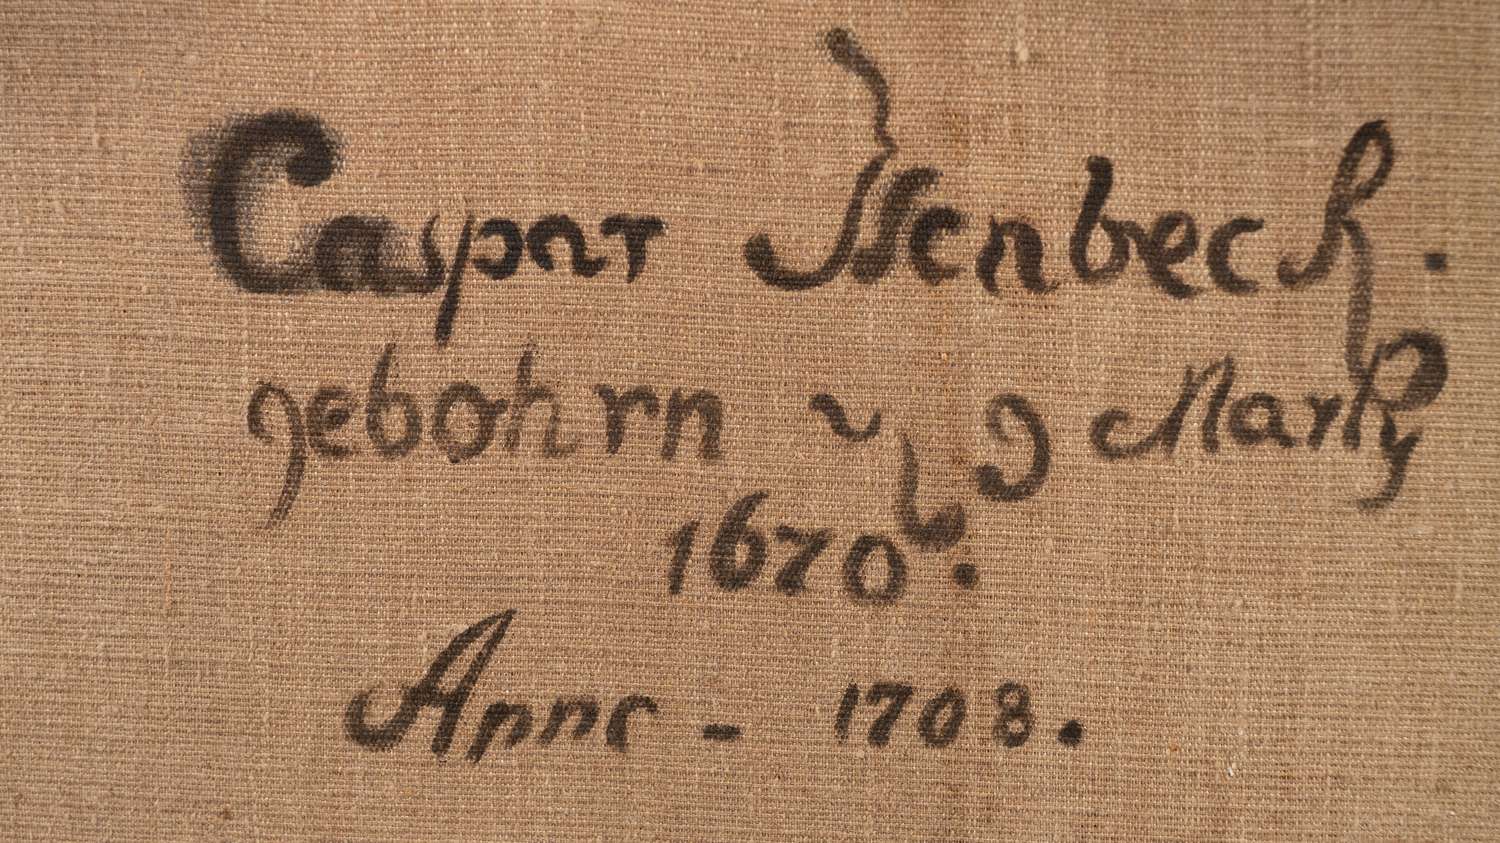 Caspar Isenbeck.
gebohrn 9 Marty
1670.
Anno - 1708.